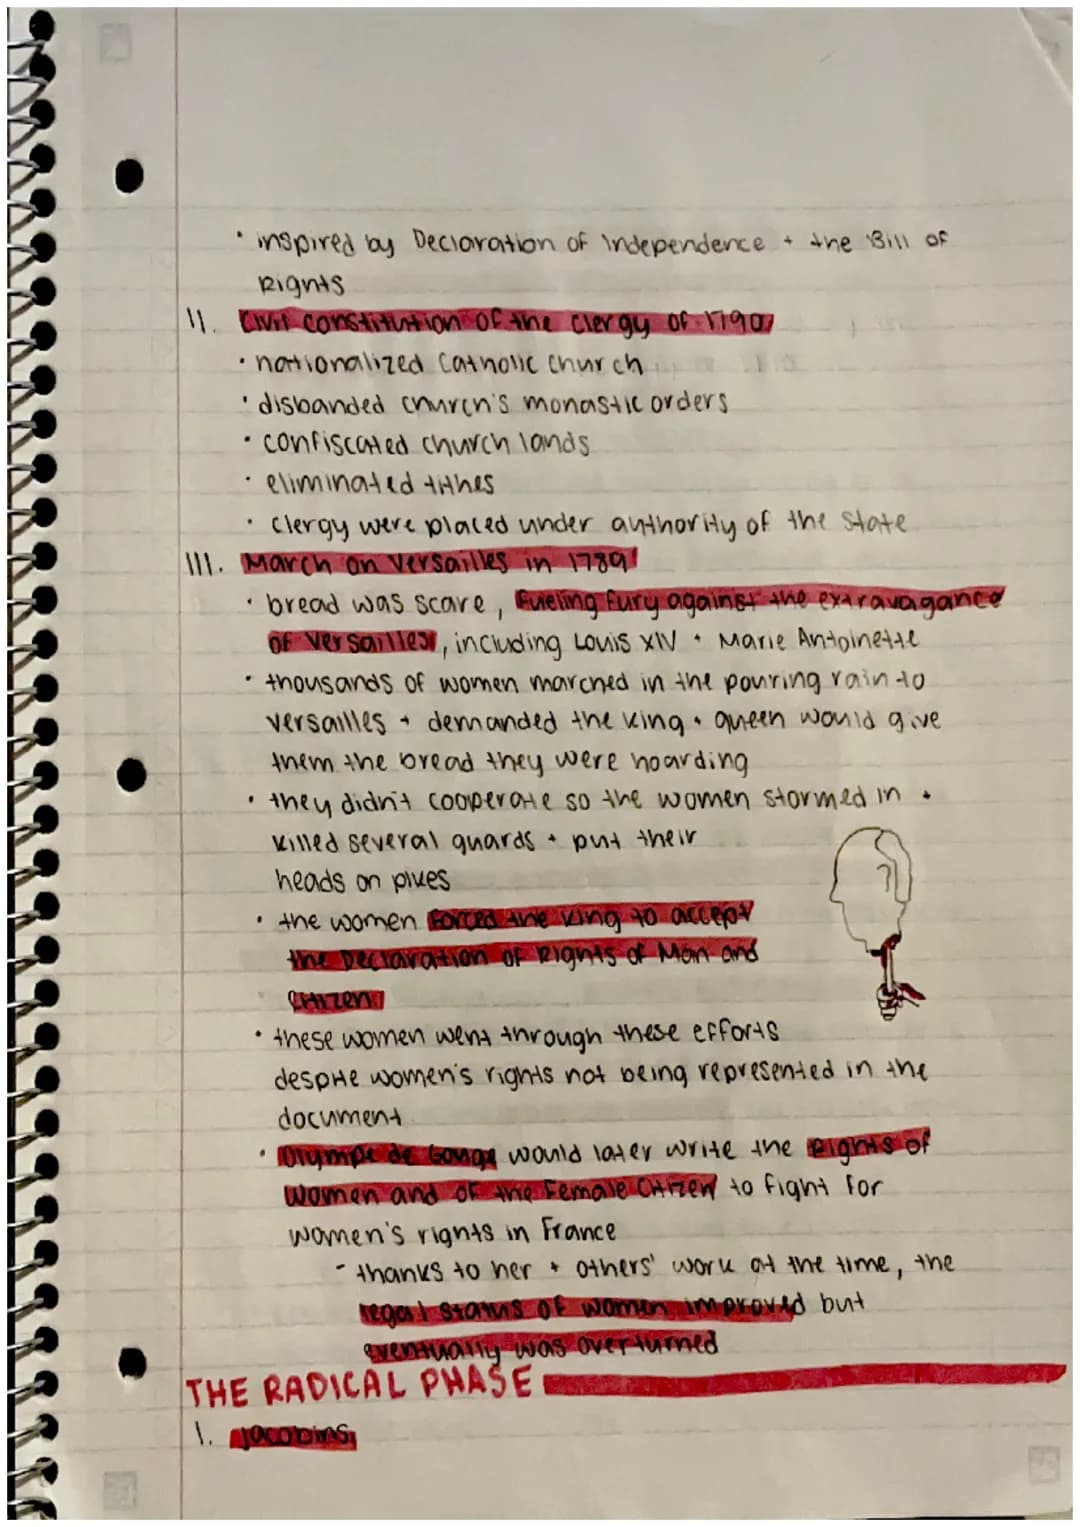 • inspired by Declaration of Independence + the Bill of
Rights
II. Civil Constitution of the Clergy of 1790
• nationalized Catholic Church
• disbanded church's monastic orders
• confiscated church lands
• eliminated tithes
• Clergy were placed under authority of the State
III. March on Versailles in 1789
• bread was scare, fueling fury against the extravagance
of Versailles, including Louis XIV + Marie Antoinette
• thousands of women marched in the pouring rain to
Versailles + demanded the king + queen would give
them the bread they were hoarding
• they didn't cooperate so the women stormed in +
killed several guards + put their
heads on pikes
• the women forced the king to accept
the Declaration of Rights of Man and
Citizen
• these women went through these efforts
despite women's rights not being represented in the
document
• Olympe de Gouge would later write the Rights of
Women and of the Female Citizen to fight for
women's rights in France
- thanks to her + others' work at the time, the
legal status of women improved but
eventually was overturned
THE RADICAL PHASE
I. Jacobins